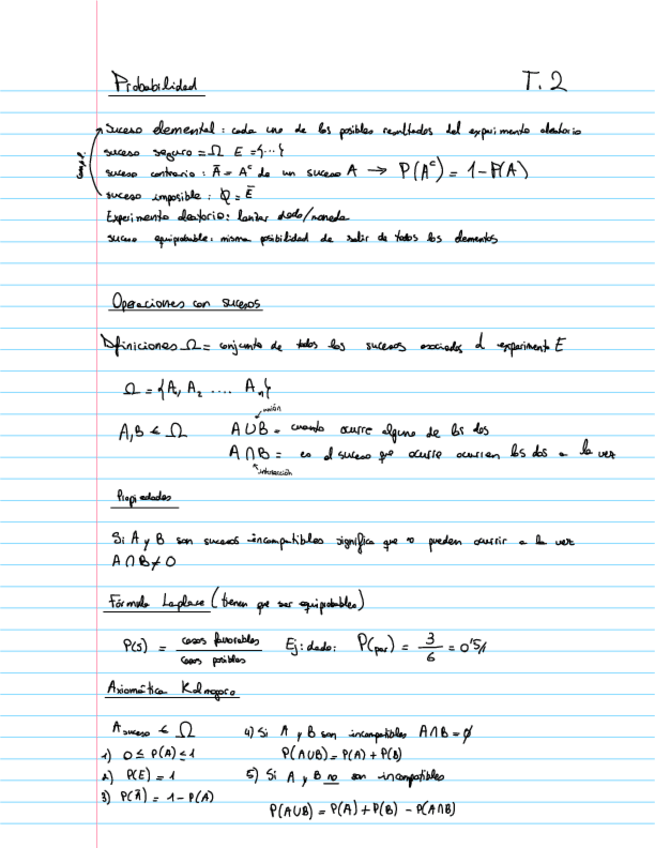 Probabilidad T.2
Suceso elemental: cada uno de los posibles resultados del experimento aleatorio
suceso seguro = Ω E = {...}
suceso contrario: Ā = Aᶜ de un suceso A → P(Aᶜ) = 1 - P(A)
suceso imposible: ∅ = Ē
Experimento aleatorio: lanzar dado/moneda
suceso equiprobable: misma posibilidad de salir de todos los elementos
Operaciones con sucesos
Dfiniciones Ω = conjunto de todos los sucesos asociados al experimento E
Ω = {A, A₂ .... Aₙ}
unión
A,B ≤ Ω A∪B = cuando ocurre alguno de los dos
A∩B = es el suceso que ocurre ocurrien los dos a la vez
intersección
Propiedades
Si A y B son sucesos incompatibles significa que no pueden ocurrir a la vez
A∩B ≠ 0
Fórmula Laplace (tienen que ser equiprobables)
P(S) = casos favorables / casos posibles Ej: dado: P(par) = 3/6 = 0'5//
Axiomática Kolmogoro
A suceso ∈ Ω 4) Si A y B son incompatibles A∩B = ∅
1) 0 ≤ P(A) ≤ 1 P(A∪B) = P(A) + P(B)
2) P(E) = 1 5) Si A y B no son incompatibles
3) P(Ā) = 1 - P(A)
P(A∪B) = P(A) + P(B) - P(A∩B)